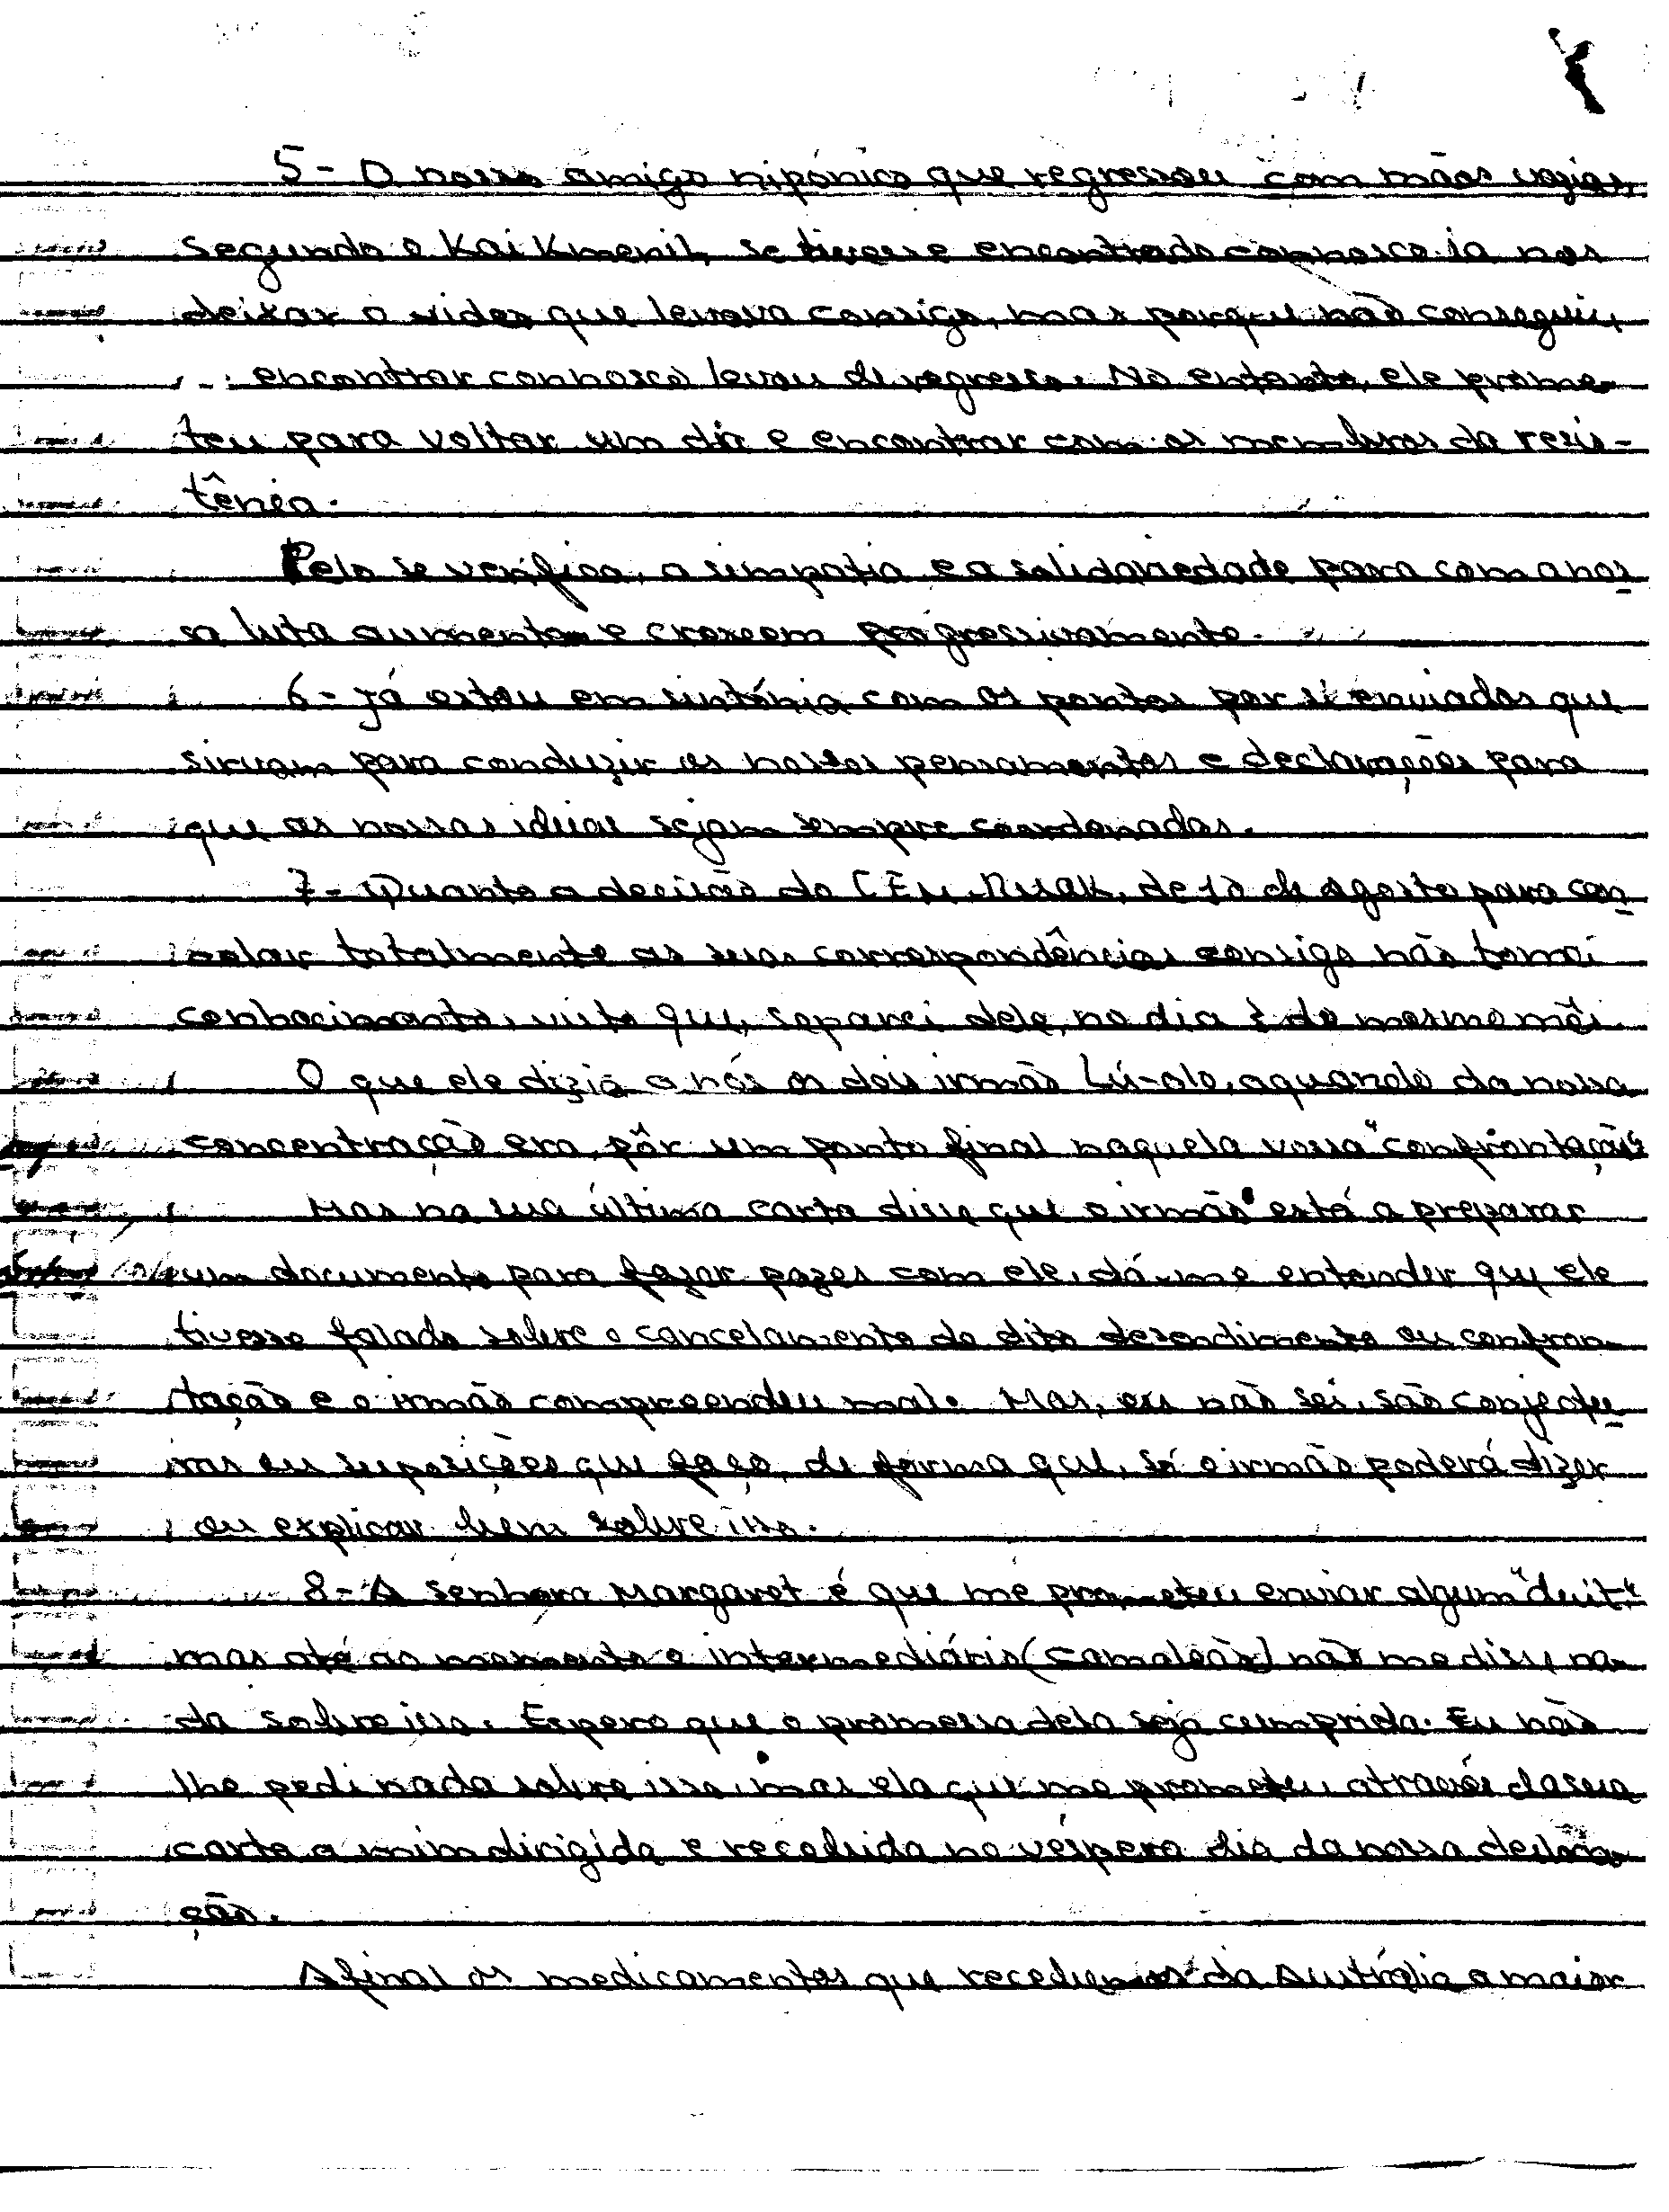 5 - O nosso amigo nipónico que regressou com mãos vazias,
segundo o Kai Kmenil, se tivesse encontrado connosco ia nos
deixar o video que levava consigo, mas porque não conseguiu,
encontrar connosco levou de regresso. No entanto, ele prome-
teu para voltar um dia e encontrar com os membros da resis-
tência.
Pelo se verifica, a simpatia e a solidariedade para com a nos-
sa luta aumenta e crescem progressivamente.
6 - Já estou em sintónia com os pontos por si enviados que
sirvam para conduzir os nossos pensamentos e declarações para
que as nossas ideias sejam sempre coordenadas.
7 - Quanto a decisão do de 10 de agosto para can-
celar totalmente as suas correspondências consigo não tomei
conhecimento, visto que, separei dele, no dia 3 do mesmo mês.
O que ele dizia a nós os dois irmão Lú-olo, aquando da nossa
concentração era, pôr um ponto final naquela vossa "confrontação"
Mas na sua última carta disse que o irmão está a preparar
um documento para fazer pazes com ele, dá-me entender que ele
tivesse falado sobre o cancelamento do dito desendimento ou confron-
tação e o irmão compreendeu mal. Mas, eu não sei, são conjectu-
ras ou suposições que faço, de forma que, só o irmão poderá dizer
ou explicar bem sobre isso.
8 - A senhora Margaret é que me prometeu enviar algum "duit"
mas até ao momento o intermediário (camaleão) não me disse na-
da sobre isso. Espero que a promessa dela seja cumprida. Eu não
lhe pedi nada sobre isso, mas ela que me prometeu através da sua
carta a mim dirigida e recebida na véspera dia da nossa desloca-
ção.
Afinal os medicamentos que recebemos da Austrália a maior